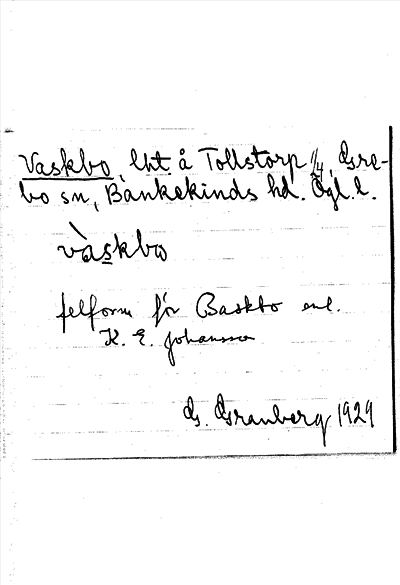 Vaskbo, lht. å Tollstorp 1/4, Gre-
bo sn, Bankekinds hd. Ögl. l.
vàskbo
felform för Baskbo enl.
K. E. Johansson
G. Granberg 1929